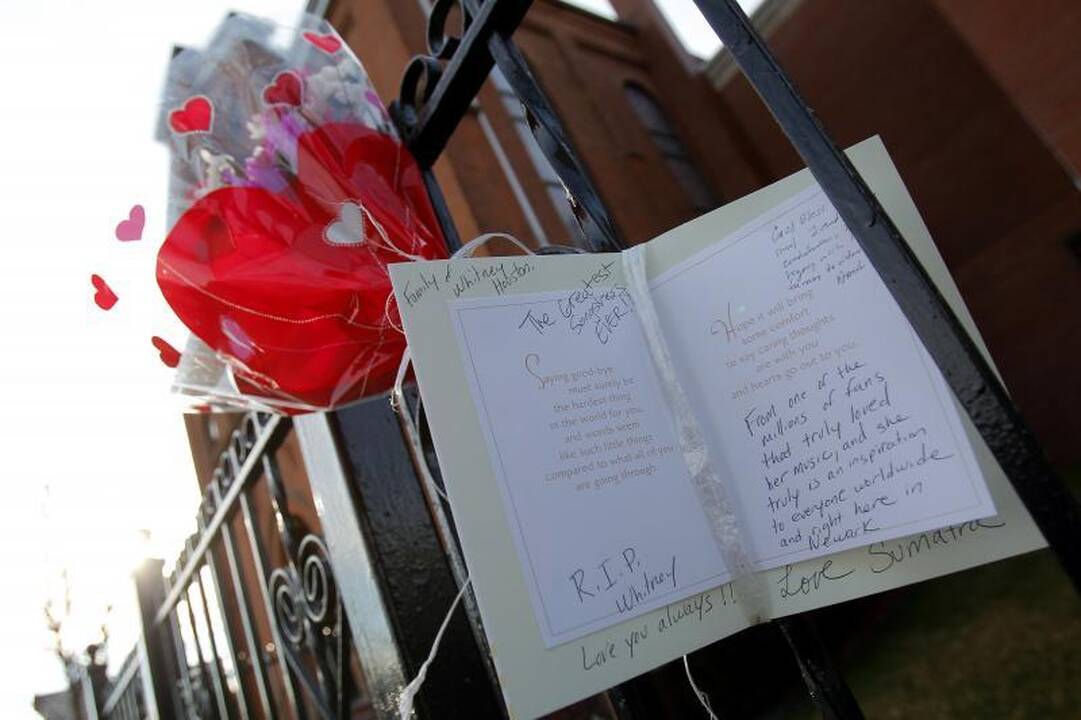 Family & Whitney
Houston.
The Greatest
Songstress
EVER!!
Saying good-bye
must surely be
the hardest thing
in the world for you,
and words seem
like such little things
compared to what all of you
are going through.
R.I.P.
Whitney
Love you always!!
God Bless
your
legacy will
Hope it will bring
some comfort
to say caring thoughts
are with you
and hearts go out to you.
From one of the
millions of fans
that truly loved
her music, and she
truly is an inspiration
to everyone worldwide
and right here in
Newark
Love Sumatra